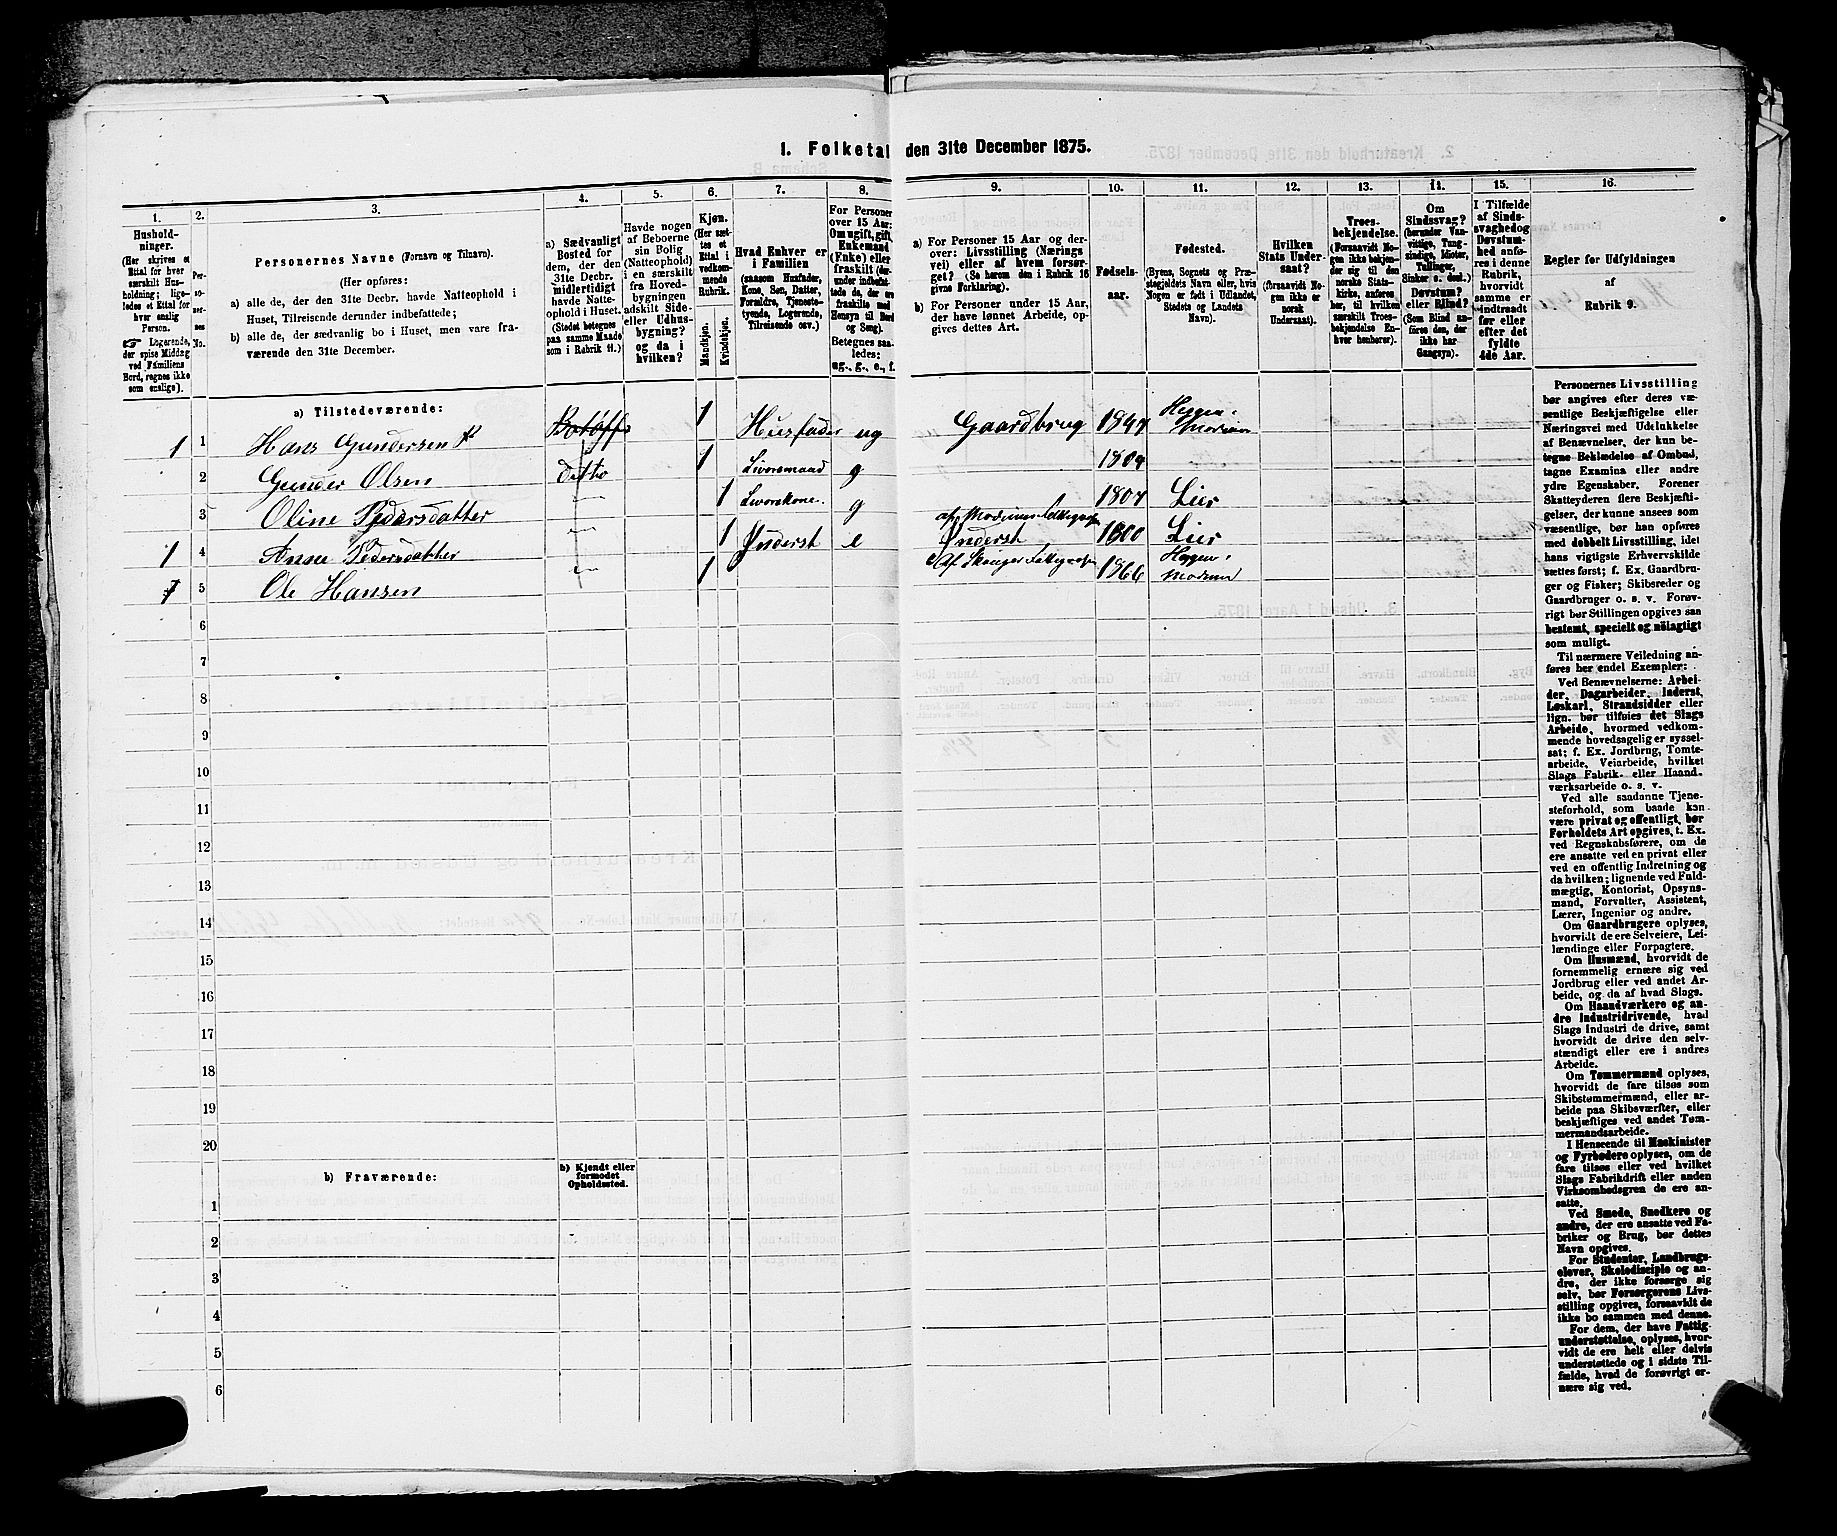 1. Folketal den 31te December 1875.
1. 2. 3. 4. 5. 6. 7. 8. 9. 10. 11. 12. 13. 14. 15. 16.
Hushold-
ninger.
(Her skrives et
Ettal for hver
særskilt Hus-
holdning; lige-
ledes et Ettal for
hver enslig
Person.
☞ Logerende,
der spise Middag
ved Familiens
Bord, regnes ikke
som enslige).
Per-
so-
ner-
nes
No.
Personernes Navne (Fornavn og Tilnavn).
(Her opføres:
a) alle de, der den 31te Decbr. havde Natteophold i
Huset, Tilreisende derunder indbefattede;
b) alle de, der sædvanlig bo i Huset, men vare fra-
værende den 31te December.
a) Sædvanligt
Bosted for
dem, der den
31te Decbr.
midlertidigt
havde Natte-
ophold i Huset.
(Stedet betegnes
paa samme Maade
som i Rubrik 11.)
Havde nogen
af Beboerne
sin Bolig
(Natteophold)
i en særskilt
fra Hoved-
bygningen
adskilt Side-
eller Udhus-
bygning?
og da i
hvilken?
Kjøn.
(Her sæt-
tes et
Ettal i
vedkom-
mende
Rubrik.
Mandkjøn.
Kvindekjøn.
Hvad Enhver er
i Familien
(saasom Husfader,
Kone, Søn, Datter,
Forældre, Tjeneste-
tyende, Logerende,
Tilreisende osv.)
For Personer
over 15 Aar:
Om ugift, gift,
Enkemand
(Enke) eller
fraskilt (der-
under indbefat-
tede de, der ere
fraskilte med
Hensyn til Bord
og Seng).
Betegnes saa-
ledes:
ug., g., e., f.
a) For Personer 15 Aar og der-
over: Livsstilling (Nærings
vei) eller af hvem forsør-
get? (Se herom den i Rubrik 16
givne Forklaring).
b) For Personer under 15 Aar,
der have lønnet Arbeide, op-
gives dettes Art.
Fødsels-
aar.
Fødested.
(Byens, Sognets og Præ-
stegjeldets Navn eller, hvis
Nogen er født i Udlandet,
Stedets og Landets
Navn).
Hvilken
Stats Under-
saat?
(forsaavidt No-
gen ikke er
norsk
Undersaat).
Troes-
bekjendelse.
(Forsaavidt No-
gen ikke bekjen-
der sig til den
norske Stats-
kirke, anføres
her, til hvilken
særskilt Troes-
bekjendelse En-
hver henhører).
Om
Sindssvag?
(herunder Van-
vittige, Tung-
sindige, Idioter,
Tullinger,
Sinker o. desl.)
Døvstum?
eller Blind?
(Som Blind an-
føres den, der
ikke har
Gangsyn).
I Tilfælde
af Sinds-
svaghed og
Døvstum-
hed anfø-
res i denne
Rubrik,
hvorvidt
samme er
indtraadt
før eller
efter det
fyldte
4de Aar.
Regler for Udfyldningen
af
Rubrik 9.
a) Tilstedeværende:
1 1 Hans Gundersen 1 Husfader ug Gaardbrug 1847 Heggen, Modum
2 Gunder Olsen ditto 1 g 1804
3 Oline Pedersdatter 1 g 1807 Lier
1 4 Anne Pedersdatter 1 Inderst e Inderst 1800 Lier
5 Ole Hansen 1 1866 Heggen, Modum
6
7
8
9
10
11
12
13
14
15
16
17
18
19
20
b) Fraværende:
b) Kjendt eller
formodet
Opholdssted.
1
2
3
4
5
6
Personernes Livsstilling
bør angives efter deres væ-
sentlige Beskjæftigelse eller
Næringsvei med Udelukkelse
af Benævnelser, der kun be-
tegne Beklædelse af Ombud,
tagne Examina eller andre
ydre Egenskaber. Forener
Skatteyderen flere Beskjæfti-
gelser, der kunne ansees som
væsentlige, bør han opføres
med dobbelt Livsstilling, idet
hans vigtigste Erhvervskilde
sættes først; f. Ex. Gaardbru-
ger og Fisker; Skibsreder og
Gaardbruger o. s. v. Forøv-
rigt bør Stillingen opgives saa
bestemt, specielt og nøiagtigt
som muligt.
Til nærmere Veiledning an-
føres her endel Exempler:
Ved Benævnelserne: Arbei-
der, Dagarbeider, Inderst,
Løskarl, Strandsidder eller
lign. bør tilføies det Slags
Arbeide, hvormed vedkom-
mende hovedsagelig er syssel-
sat; f. Ex. Jordbrug, Tomte-
arbeide, Veiarbeide, hvilket
Slags Fabrik- eller Haand-
værksarbeide o. s. v.
Ved alle saadanne Tjene-
steforhold, som baade kan
være privat og offentligt, bør
Forholdets Art opgives, t. Ex.
ved Regnskabsførere, om de
ere ansatte ved en privat eller
ved en offentlig Indretning og
da hvilken; lignende ved Fuld-
mægtig, Kontorist, Opsyns-
mand, Forvalter, Assistent,
Lærer, Ingeniør og andre.
Om Gaardbrugere oplyses,
hvorvidt de ere Selveiere, Lei-
lændinge eller Forpagtere.
Om Husmænd, hvorvidt de
fornemmelig ernære sig ved
Jordbrug eller ved andet Ar-
beide, og da af hvad Slags.
Om Haandværkere og an-
dre Industridrivende, hvad
Slags Industri de drive, samt
hvorvidt de drive den selv-
stændigt eller ere i andres
Arbeide.
Om Tømmermænd oplyses,
hvorvidt de fare tilsøs som
Skibstømmermænd, eller ar-
beide paa Skibsværfter, eller
beskjæftiges ved andet Tøm-
mermandsarbeide.
I Henseende til Maskinister
og Fyrbødere oplyses, om de
fare tilsøs eller ved hvilket
Slags Fabrikdrift eller anden
Virksomhedsgren de ere an-
satte.
Ved Smede, Snedkere og
andre, der ere ansatte ved Fa-
briker og Brug, bør dettes
Navn opgives.
For Studenter, Landbrugs-
elever, Skoledisciple og an-
dre, der ikke forsørge sig
selv, bør Forsørgerens Livs-
stilling opgives, forsaavidt de
ikke bo sammen med denne.
For dem, der have Fattig-
understøttelse, oplyses, hvor-
vidt de ere helt eller delvis
understøttede og i sidste Til-
fælde, hvad de forøvrigt er-
nære sig ved.